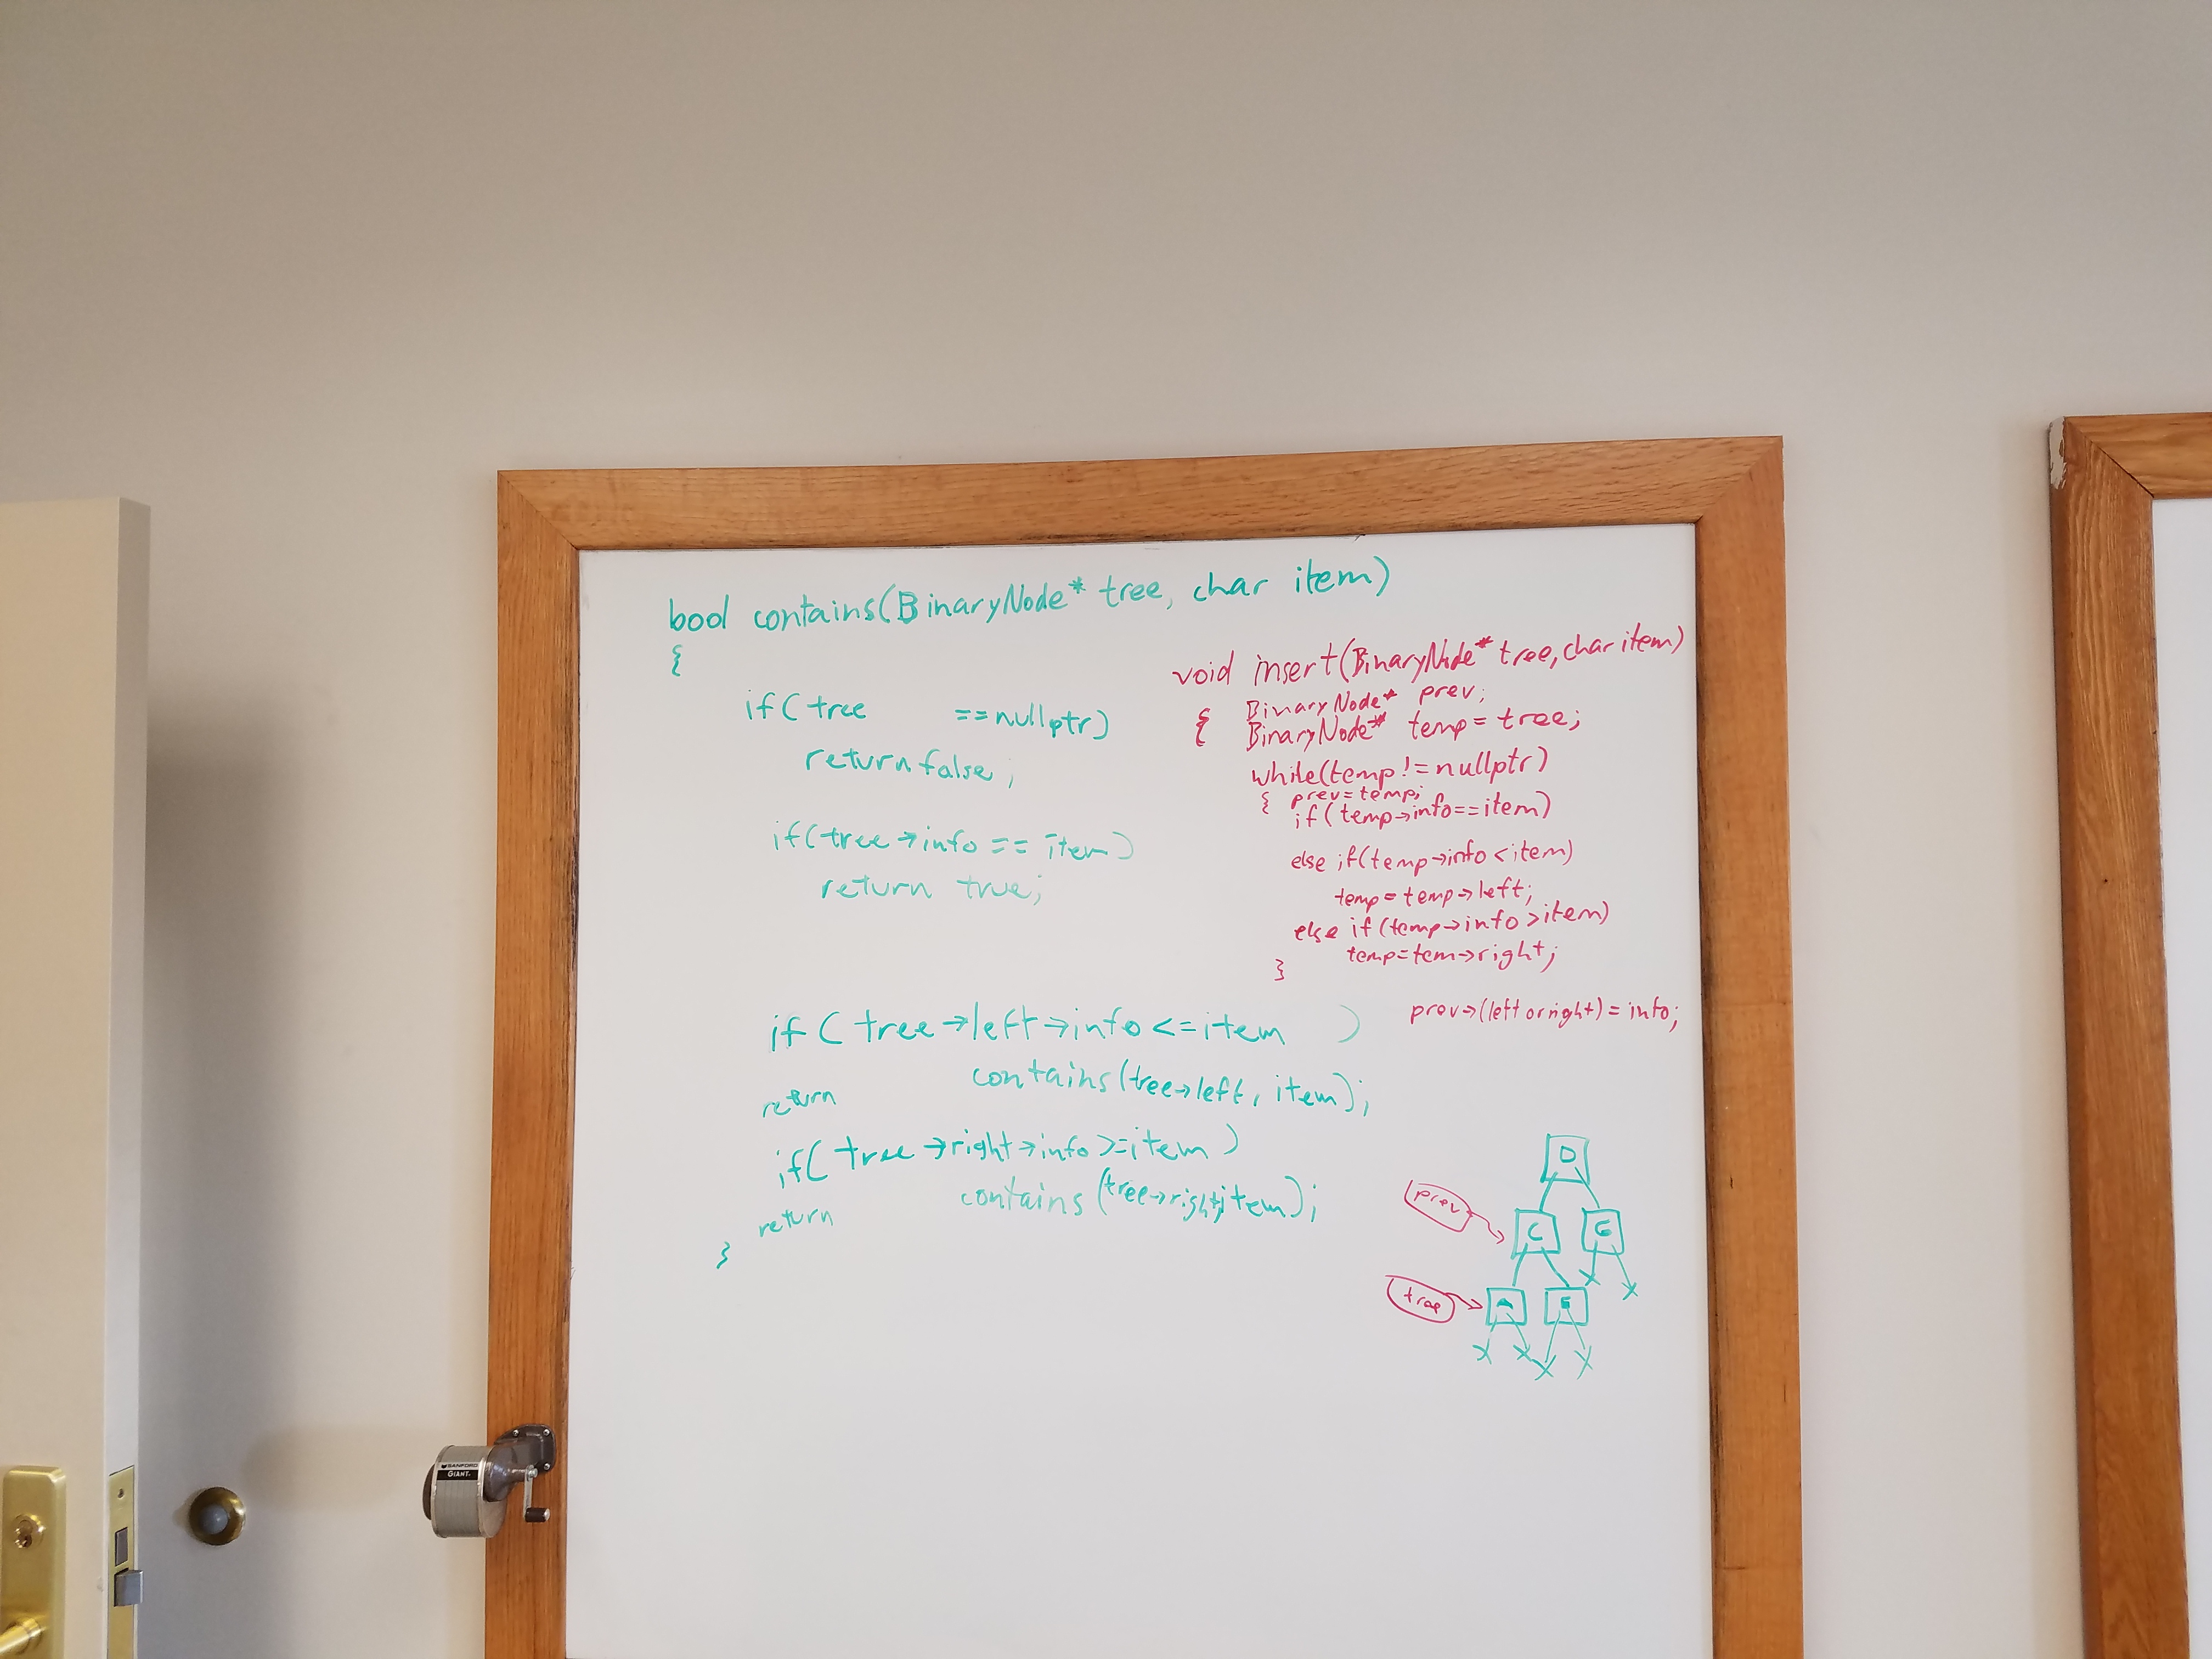 bool contains(BinaryNode* tree, char item)
{
if(tree ==nullptr)
return false;
if(tree→info == item)
return true;
if(tree→left→info <=item )
contains(tree→left, item);
return
if(tree→right→info >=item)
contains(tree→right,item);
return
}
void insert(BinaryNode* tree, char item)
BinaryNode* prev;
{ BinaryNode* temp = tree;
while(temp != nullptr)
{ prev=temp;
if(temp→info==item)
else if(temp→info <item)
temp = temp→left;
else if(temp→info >item)
temp=tem→right;
}
prev→(left or right) = info;
D
prev
C
tree
SANFORD
GIANT